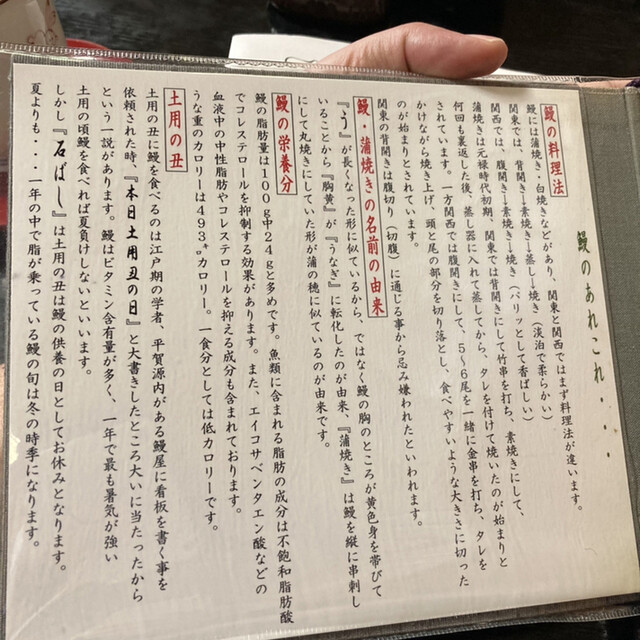 鰻のあれこれ・・・・
鰻の料理法
鰻には蒲焼き・白焼きなどがあり、関東と関西ではまず料理法が違います。
関東では、背開き→素焼き→蒸し→焼き(淡泊で柔らかい)
関西では、腹開き→素焼き→焼き(パリッとして香ばしい)
蒲焼きは元禄時代初期、関東では背開きにして竹串を打ち、素焼きにして、
何回も裏返した後、蒸し器に入れて蒸してから、タレを付けて焼いたのが始まりと
されています。一方関西では腹開きにして、5〜6尾を一緒に金串を打ち、タレを
かけながら焼き上げ、頭と尾の部分を切り落とし、食べやすいような大きさに切った
のが始まりとされています。
関東の背開きは腹切り(切腹)に通じる事から忌み嫌われたといわれます。
鰻・蒲焼きの名前の由来
『う』が長くなった形に似ているから、ではなく鰻の胸のところが黄色身を帯びて
いることから『胸黄』が『うなぎ』に転化したのが由来、『蒲焼き』は鰻を縦に串刺し
にして丸焼きにしていた形が蒲の穂に似ているのが由来です。
鰻の栄養分
鰻の脂肪量は100g中24gと多めです。魚類に含まれる脂肪の成分は不飽和脂肪酸
でコレステロールを抑制する効果があります。また、エイコサペンタエン酸などの
血液中の中性脂肪やコレステロールを抑える成分も含まれております。
うな重のカロリーは493㌔カロリー。一食分としては低カロリーです。
土用の丑
土用の丑に鰻を食べるのは江戸期の学者、平賀源内がある鰻屋に看板を書く事を
依頼された時、『本日土用丑の日』と大書きしたところ大いに当たったから
という一説があります。鰻はビタミン含有量が多く、一年で最も暑気が強い
土用の頃鰻を食べれば夏負けしないといいます。
しかし『石ばし』は土用の丑は鰻の供養の日としてお休みとなります。
夏よりも・・・一年の中で脂が乗っている鰻の旬は冬の時季になります。